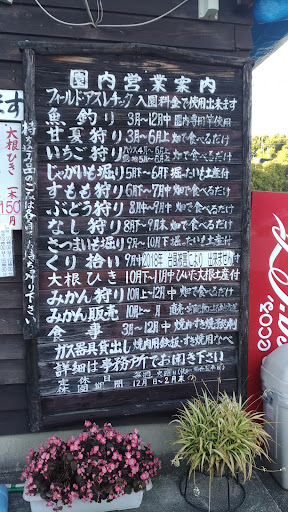 園内営業案内
フィールド・アスレチック 入園料金で使用出来ます
魚釣り 3月〜12月中 園内専用竿使用
甘夏狩り 3月〜6月上 畑で食べるだけ
いちご狩り 畑で食べるだけ
じゃがいも掘り 5月下〜6月下 堀ったいも土産付
すもも狩り 6月下〜7月 畑で食べるだけ
ぶどう狩り 8月中〜9月 畑で食べるだけ
なし狩り 8月〜9月末 畑で食べるだけ
さつまいも堀り 9月〜10月下 堀ったいも土産付
くり拾い 9月中 2018年
大根ひき 10月下〜11月中 ひいた大根土産付
みかん狩り 10月上〜12月中 畑で食べるだけ
みかん販売 10月上〜1月
食事 3月〜12月中 焼肉
ガス器具貸出し 焼肉用鉄板・すき焼なべ
詳細は事務所でお聞き下さい
定休日
休園期間 12月
大根ひき
一本
150
持ち込み品のゴミは各自でお持ち帰り下さい
ecoる